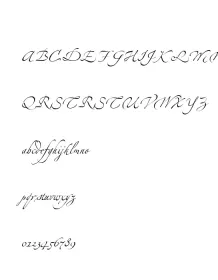 ABCDEFGHIJKLMN
QRSTRSTUVWXYZ
abcdefghijklmno
pqrstuvwxyz
0123456789